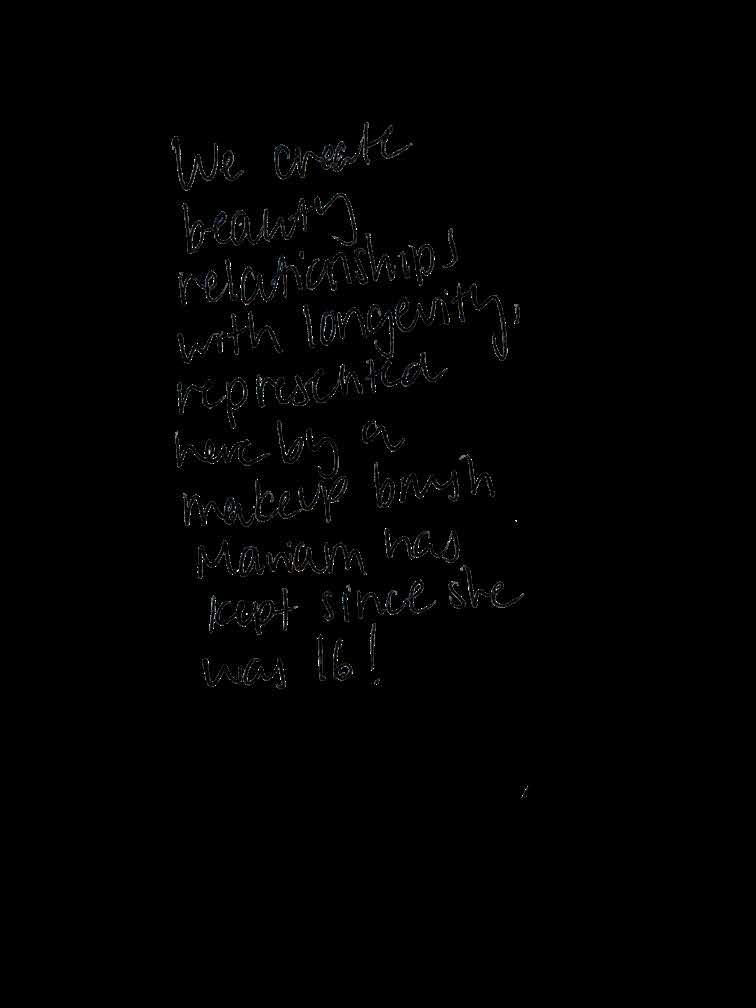 We create
beauty
relationships
with longevity,
represented
here by a
makeup brush
Mariam has
kept since she
was 16!